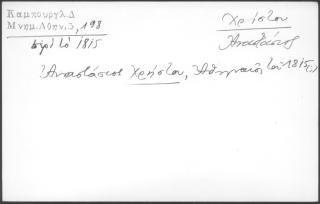 Καμπουρογλ.Δ
Μνημ.Αθην.3, 198
περὶ τὸ 1815
Χρήστου
Ἀναστάσιος
Ἀναστάσιος Χρήστου, Ἀθηναῖος τοῦ 1815